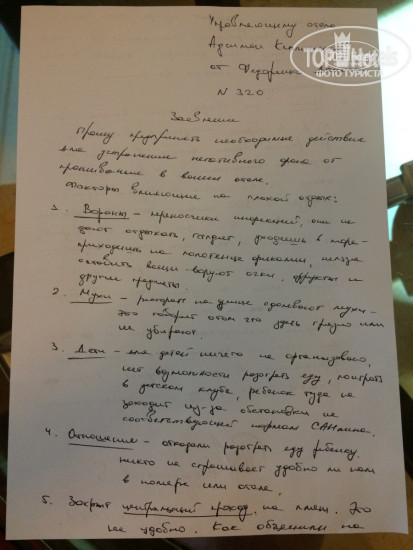 Управляющему отеля
от Федорина
N 320
TOP Hotels
ФОТО ТУРИСТА
Заявление
Прошу предпринять необходимые действия
для устранение негативного фона от
проживание в вашем отеле.
Факторы влияющие на плохой отдых:
1. Вороны – переносчики инфекций, они не
дают отдыхать, галдят, уходишь в море –
приходишь на полотенце фекалии, нельзя
оставить вещи – воруют очки, фрукты и
другие предметы.
2. Мухи – ресторане на улице одолевают мухи –
это говорит о том что здесь грязно или
не убирают.
3. Дети – для детей ничего не организовано,
нет возможности разогреть еду, поиграть
в детском клубе, ребенок туда не
заходит из-за обстановки не
соответствующей нормам САНпина.
4. Отношение – отказали разогреть еду ребенку.
никто не спрашивает удобно ли нам
в номере или отеле.
5. Закрыт центральный проход на пляж. Это
не удобно. Как объяснили на